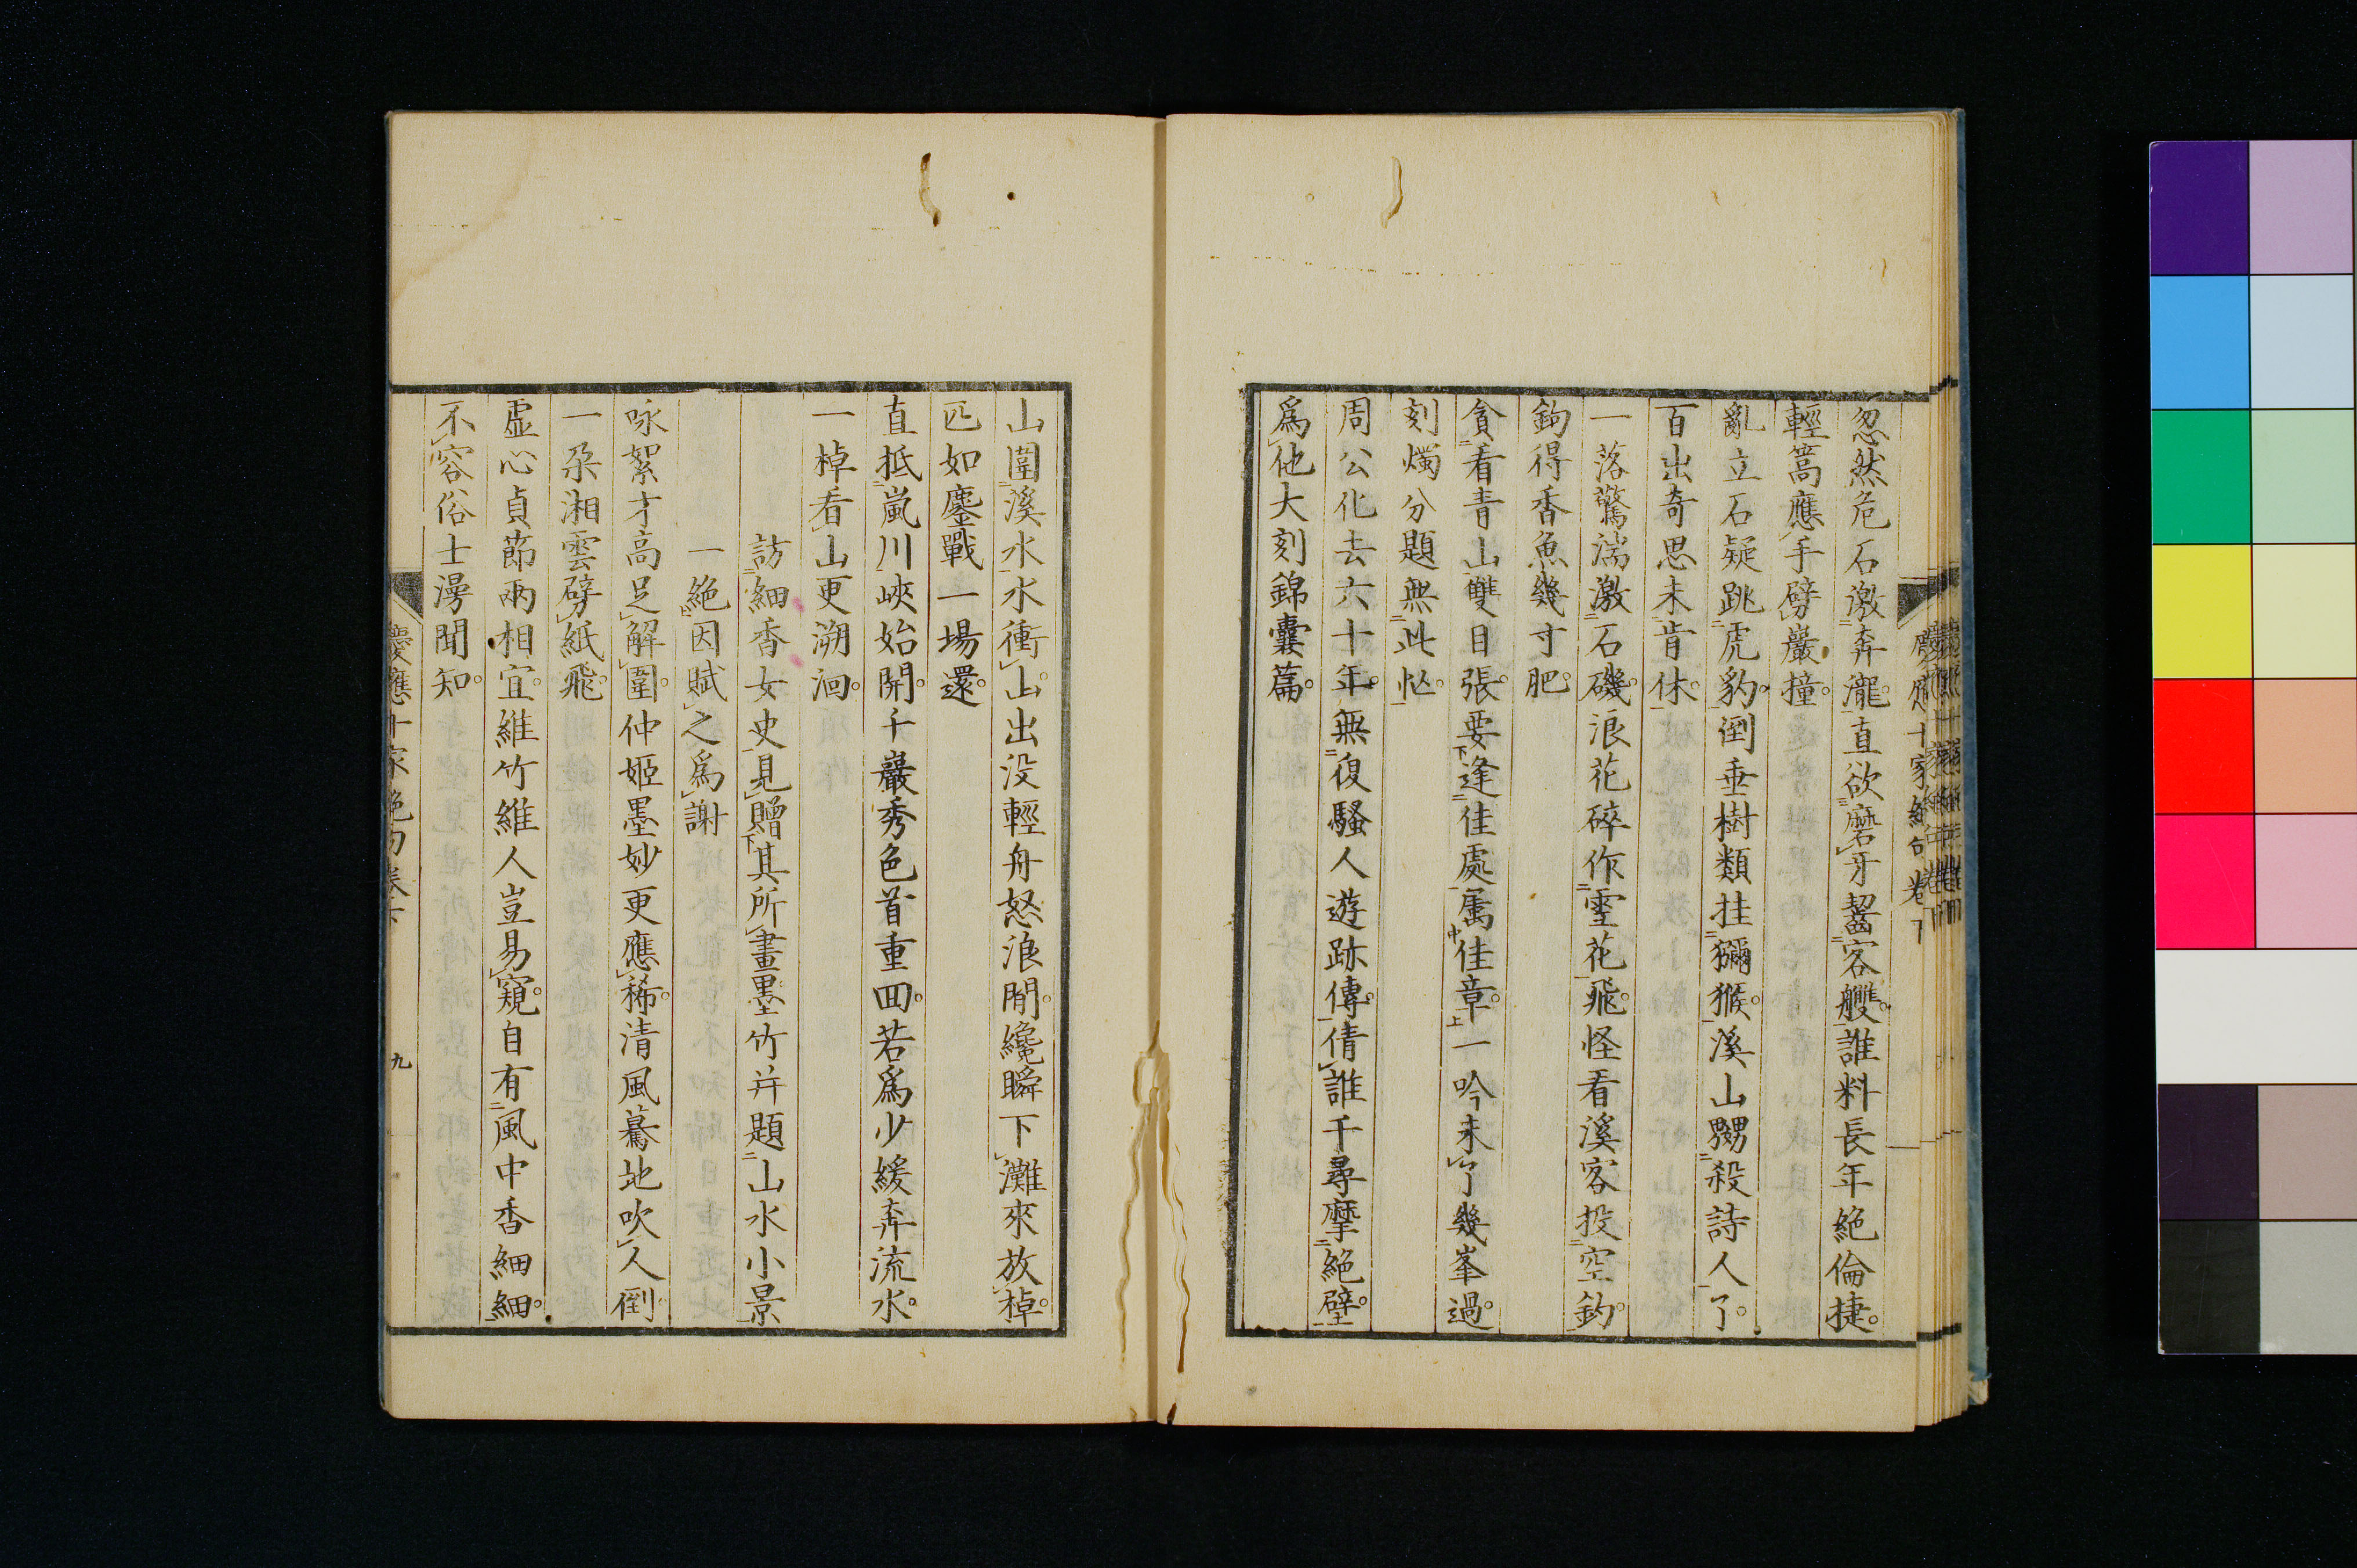 忽然危石激奔瀧。直欲磨牙齧客艭。誰料長年絶倫捷。
輕篙應手劈巖撞。
亂立石疑跳虎豹。倒垂樹類挂獼猴。溪山嬲殺詩人了。
百出奇思未肯休。
一落驚湍激石磯。浪花碎作雪花飛。怪看溪客投空釣。
鉤得香魚幾寸肥。
貪看青山雙目張。要逢佳處属佳章。一吟未了幾峯過。
刻燭分題無此忙。
周公化去六十年。無復騷人遊跡傳。倩誰千尋摩絶壁。
爲他大刻錦囊篇。
慶應十家絶句卷下
山圍溪水水衝山。出没輕舟怒浪間。纔瞬下灘來放棹。
匹如鏖戰一場還。
直抵嵐川峽始開。千巖秀色首重回。若爲少緩奔流水。
一棹看山更溯洄。
訪細香女史見贈其所畫墨竹并題山水小景
一絶因賦之爲謝
咏絮才高足解圍。仲姬墨妙更應稀。清風驀地吹人倒。
一朶湘雲劈紙飛。
虚心貞節兩相宜。維竹維人豈易窺。自有風中香細細。
不容俗士漫聞知。
慶應十家絶句卷下
九